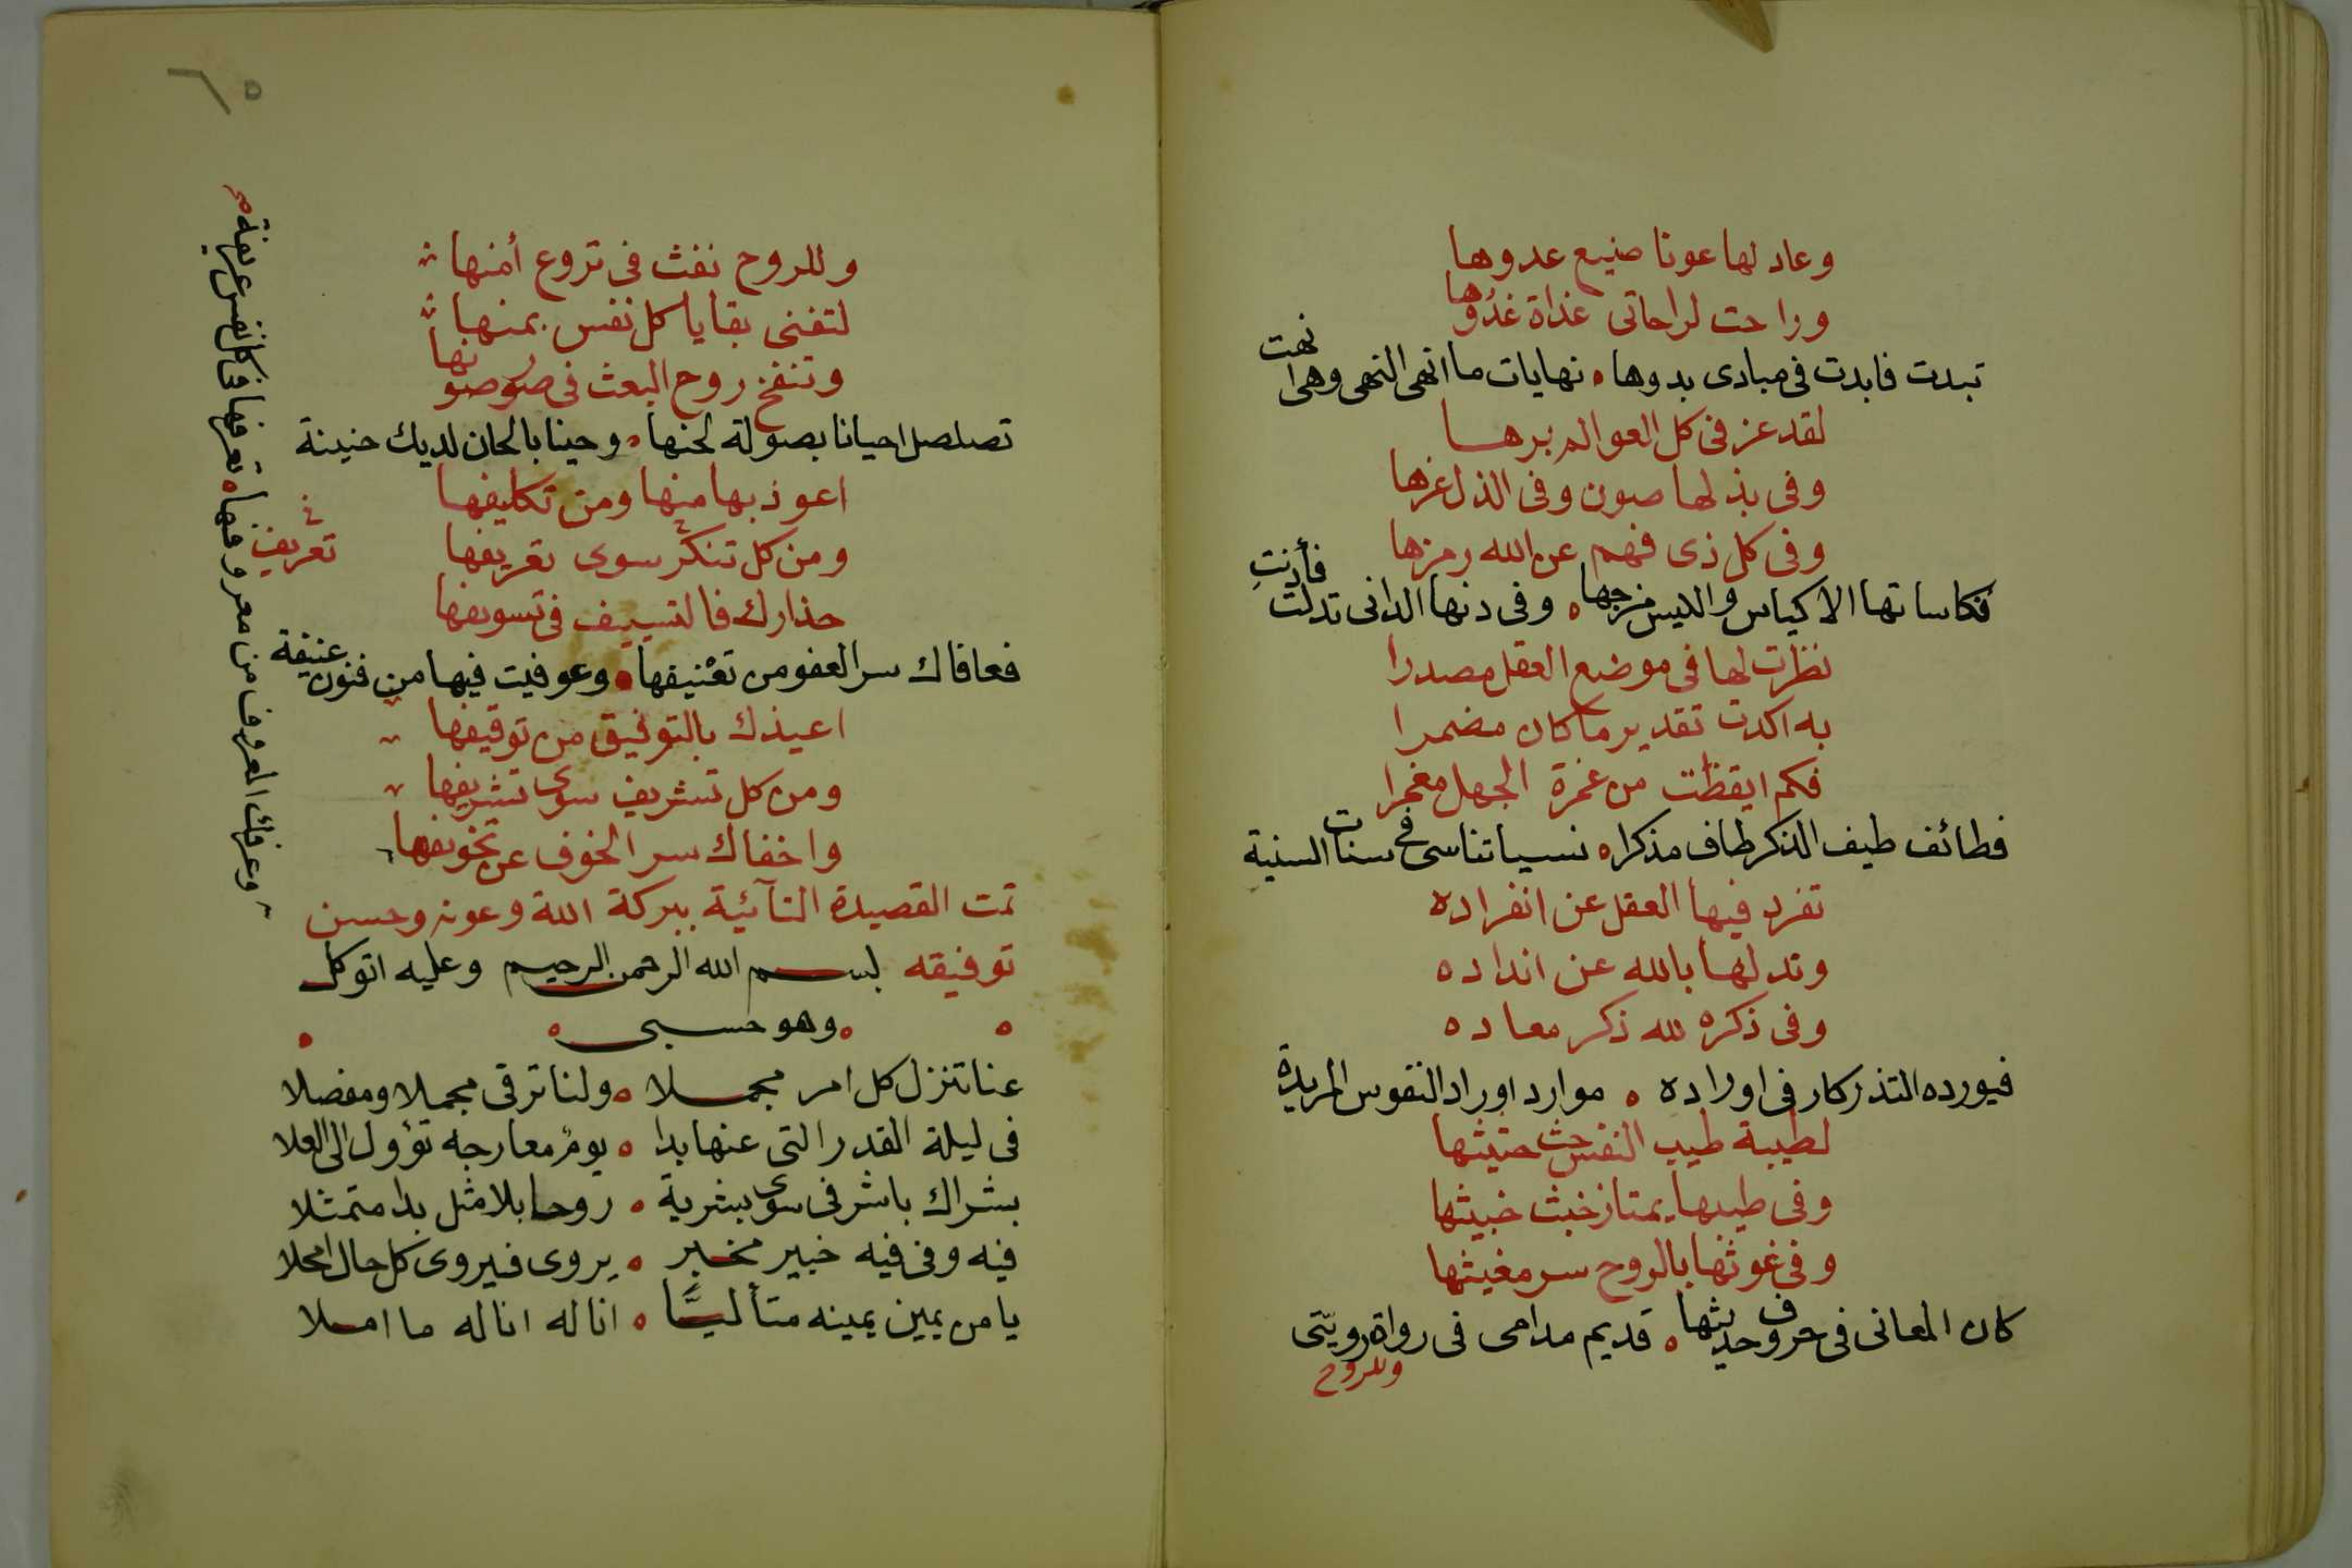 وعاد لها عونا صنيع عدوها
وراحت لراحاتى غداة غدوها
تبدت فابدت فى مبادى بدوها ه نهايات ما انهى النهى وهى انهت
لقد عز فى كل العوالم برها
وفى بذلها صون وفى الذل عزها
وفى كل ذى فهم عن الله رمزها
فكاساتها الاكياس والليس مزجها ه وفى دنها الدانى تدلت فأدنتِ
نظرت لها فى موضع العقل مصدرا
به اكدت تقدير ما كان مضمرا
فكم ايقظت من غمرة الجهل مغمرا
فطائف طيف الذكر طاف مذكرا ه نسيا تناسى فى سنات السنية
تفرد فيها العقل عن انفراده
وتد لها بالله عن انداده
وفى ذكره لله ذكر معاده
فيورده التذكار فى اوراده ه موارد اوراد النفوس المريدة
لطيبة طيب النفس حث حثيثها
وفى طيبها يمتاز خبث خبيثها
وفى غوثها بالروح سر مغيثها
كان المعانى فى حروف حديثها ه قديم مدامى فى رواة رويّتى
وللروح
٦٥
وللروح نفث فى تروع أمنها
لتفنى بقايا كل نفس بمنها
وتنفخ روح البعث فى صور صونها
تصلصل احيانا بصولة لحنها ه وحينا بالحان لديك حنينة
اعوذ بها منها ومن تكليفها
ومن كل تنكر سوى تعريفها
تعريف
حذارك فالتسييف فى تسويفها
فعافاك سر العفو من تعْنيفها ه وعوفيت فيها من فنون عنيفة
اعيذك بالتوفيق من توقيفها
ومن كل تشريف سوى تشريفها
واخفاك سر الخوف عن تخويفها
وعرفك المعروف من معروفها ه تعرفها فى كل نفس عريفة
تمت القصيدة التآئية ببركة الله وعونه وحسن
توفيقه بسم الله الرحمن الرحيم وعليه اتوكل
ه وهو حسبى ه
عنا تنزل كل امر مجملا ه ولنا ترقى مجملا ومفصلا
فى ليلة القدر التى عنها بدا ه يومٌ معارجه تؤول الى العلا
بشراك باشر فى سوى بشرية ه روحا بلا مثل بدا متمثلا
فيه وفى فيه خبير مخبر ه يروى فيروى كل حال امحلا
يا من يمين يمينه متأليًّا ه اناله اناله ما املا